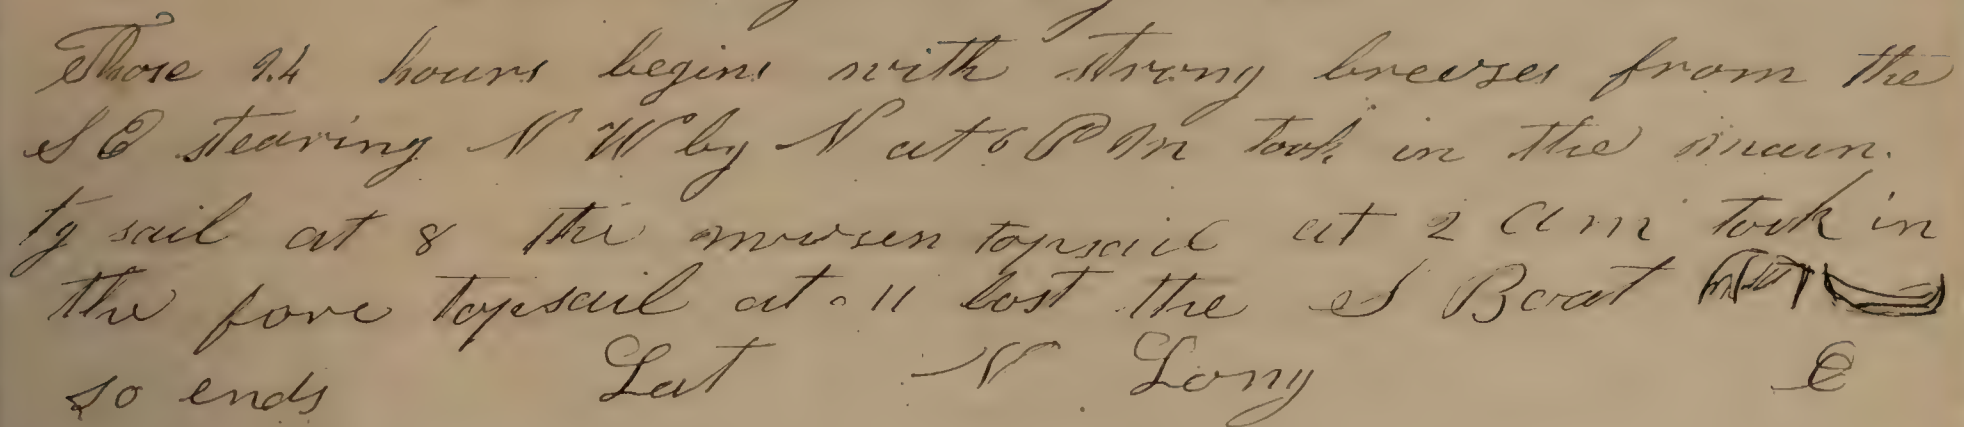 Those 24 hours begins with strong breeses from the
S E stearing N W by N at 6 P M took in the main.
ty sail at 8 the missen topsail at 2 a m took in
the fore topsail at 11 lost the S Boat
so ends Lat N Long E